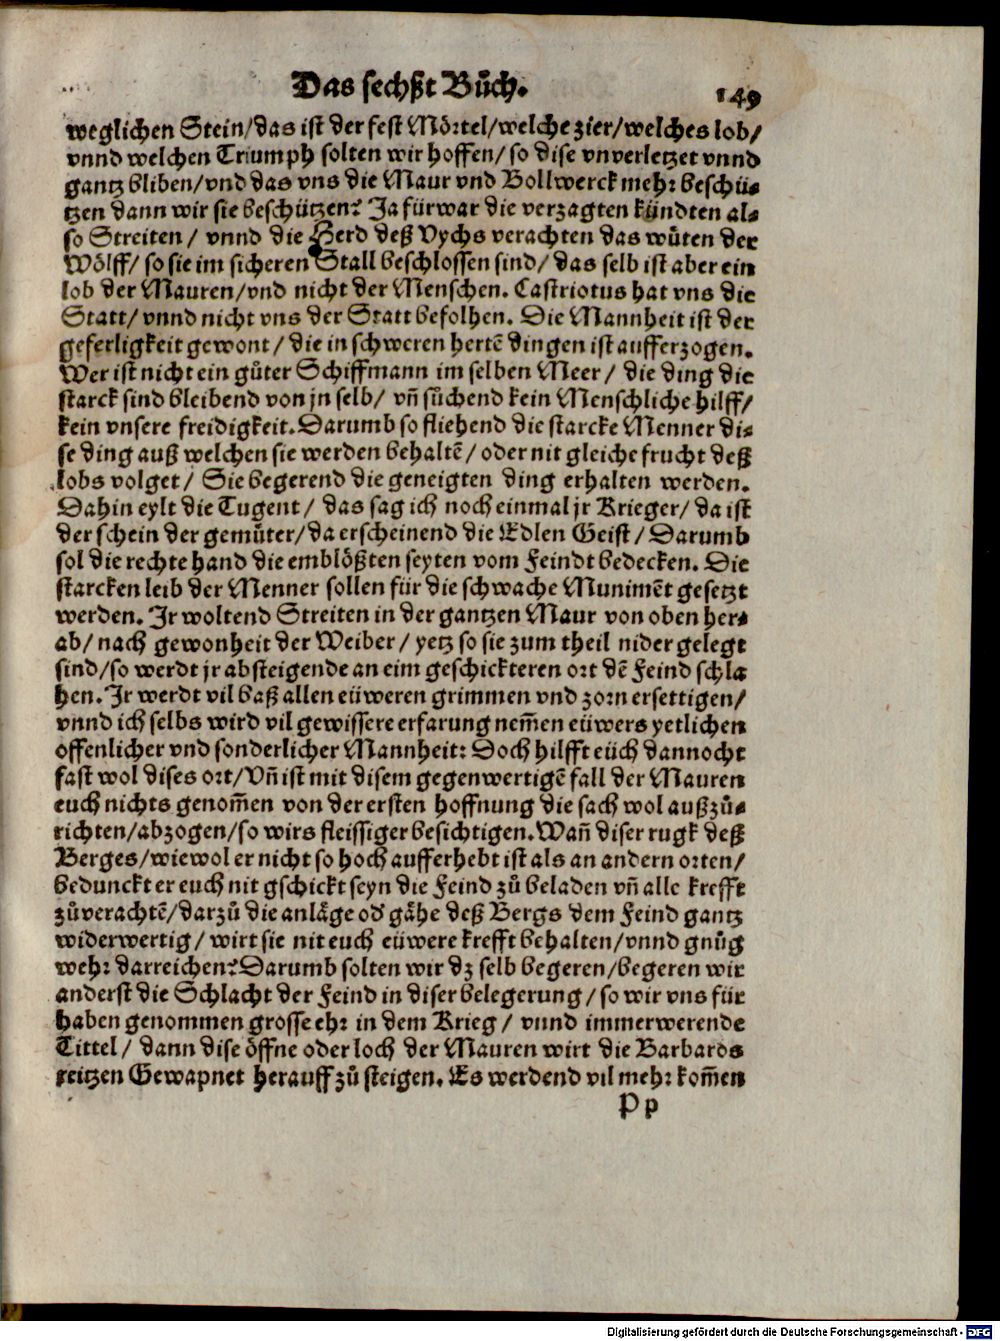 Das sechßt Bůch.
149
weglichen Stein/das ist der fest Mörtel/welche zier/welches lob/
vnnd welchen Triumph solten wir hoffen/so dise vnverletzet vnnd
gantz bliben/vnd das vns die Maur vnd Bollwerck mehr beschü-
tzen dann wir sie beschützen? Ja fürwar die verzagten kündten al-
so Streiten/ vnnd die Herd deß Vychs verachten das wůten der
Wölff/ so sie im sicheren Stall beschlossen sind/ das selb ist aber ein
lob der Mauren/vnd nicht der Menschen. Castriotus hat vns die
Statt/ vnnd nicht vns der Statt befolhen. Die Mannheit ist der
geferligkeit gewont/ die in schweren hertē dingen ist aufferzogen.
Wer ist nicht ein gůter Schiffmann im selben Meer/ die ding die
starck sind bleibend von jn selb/ vñ sůchend kein Menschliche hilff/
kein vnsere freidigkeit. Darumb so fliehend die starcke Menner di-
se ding auß welchen sie werden behaltē/ oder nit gleiche frucht deß
lobs volget/ Sie begerend die geneigten ding erhalten werden.
Dahin eylt die Tugent/ das sag ich noch einmal jr Krieger/ da ist
der schein der gemůter/da erscheinend die Edlen Geist/ Darumb
sol die rechte hand die emblößten seyten vom Feindt bedecken. Die
starcken leib der Menner sollen für die schwache Munimēt gesetzt
werden. Ir woltend Streiten in der gantzen Maur von oben her-
ab/ nach gewonheit der Weiber/ yetz so sie zum theil nider gelegt
sind/so werdt jr absteigende an eim geschickteren ort dē Feind schla
hen. Ir werdt vil baß allen eüweren grimmen vnd zorn ersettigen/
vnnd ich selbs wird vil gewissere erfarung nem̃en eüwers yetlichen
offenlicher vnd sonderlicher Mannheit: Doch hilfft eüch dannocht
fast wol dises ort/ Vñ ist mit disem gegenwertigē fall der Mauren
euch nichts genom̃en von der ersten hoffnung die sach wol außzů-
richten/abzogen/so wirs fleissiger besichtigen. Wañ diser rugk deß
Berges/wiewol er nicht so hoch aufferhebt ist als an andern orten/
bedunckt er euch nit gschickt seyn die Feind zů beladen vñ alle krefft
zůverachtē/darzů die anläge od' gähe deß Bergs dem Feind gantz
widerwertig/ wirt sie nit euch eüwere krefft behalten/vnnd gnůg
wehr darreichen? Darumb solten wir dz selb begeren/begeren wir
anderst die Schlacht der Feind in diser belegerung/ so wir vns für
haben genommen grosse ehr in dem Krieg/ vnnd immerwerende
Tittel/ dann dise öffne oder loch der Mauren wirt die Barbaros
reitzen Gewapnet herauff zů steigen. Es werdend vil mehr kom̃en
Pp
Digitalisierung gefördert durch die Deutsche Forschungsgemeinschaft - DFG